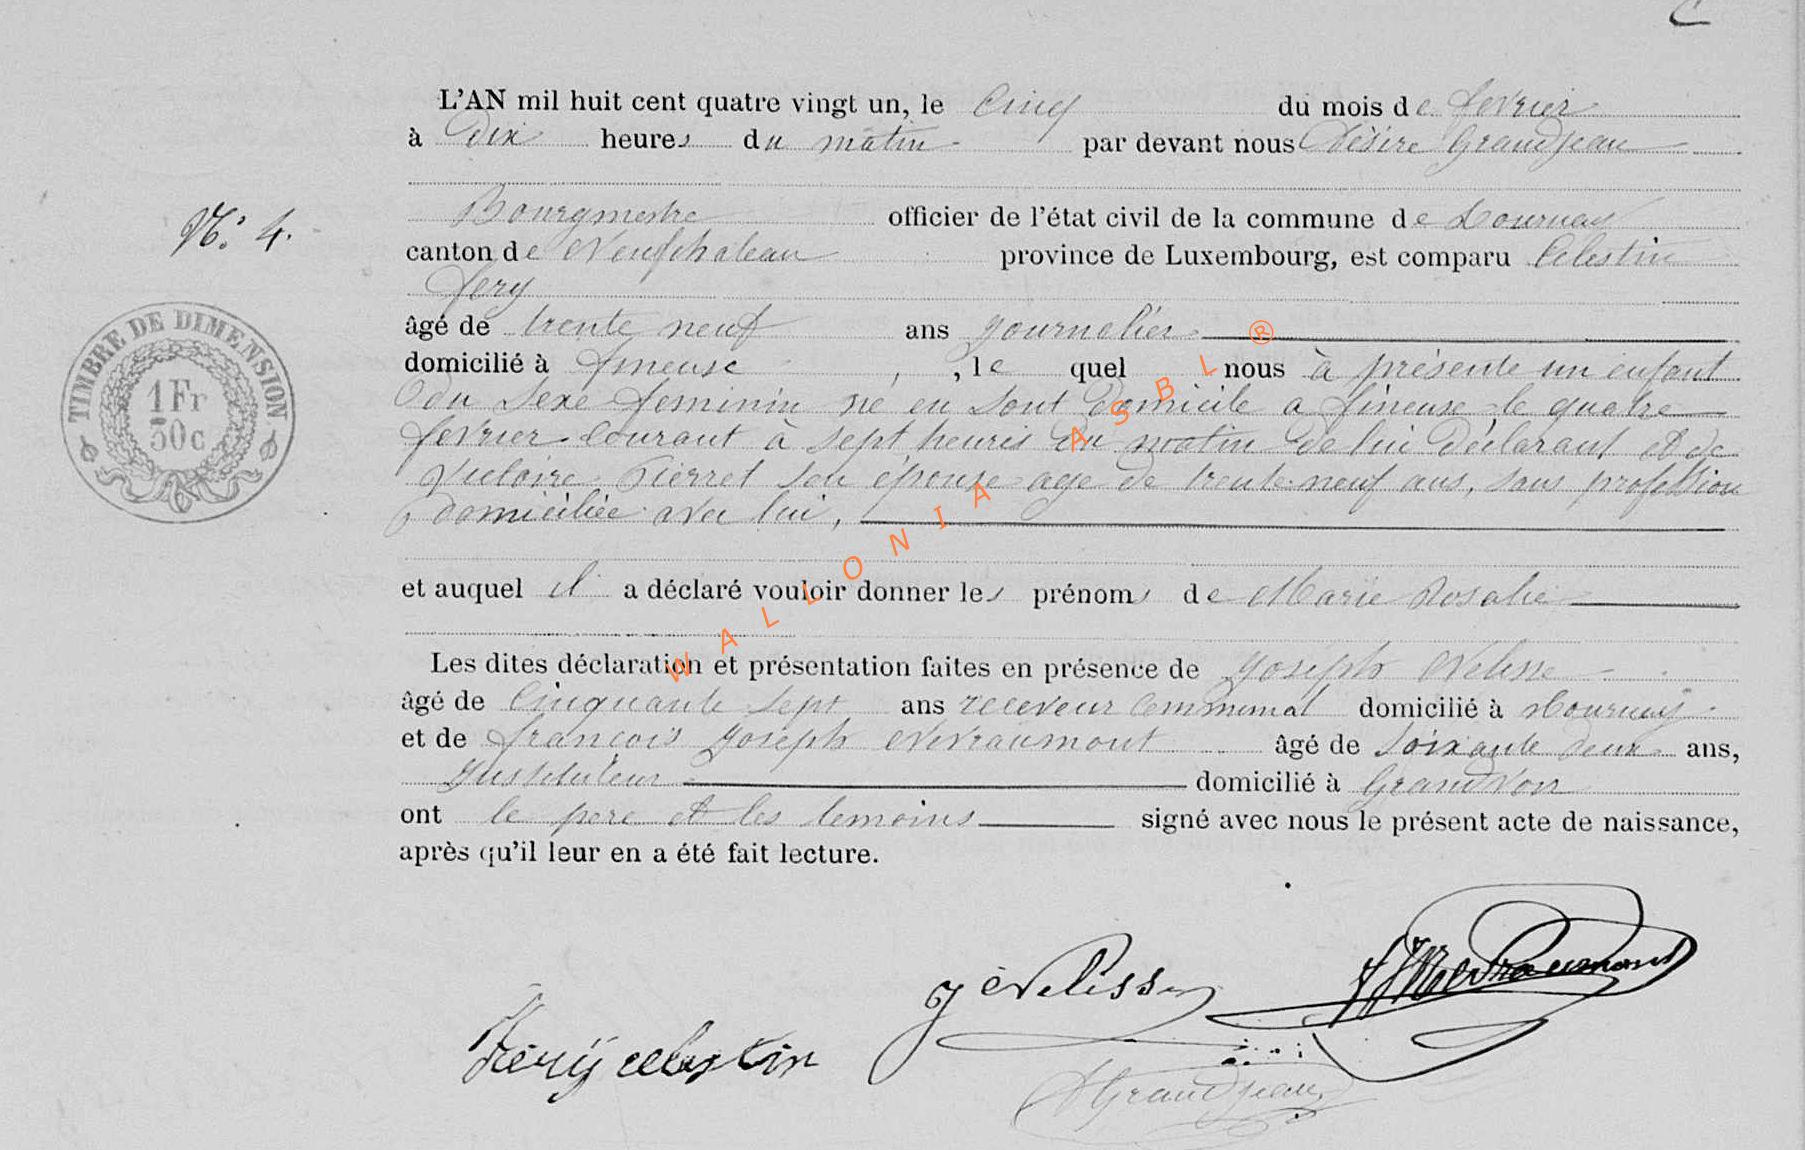 L'AN mil huit cent quatre vingt un, le Cinq du mois de fevrier
à Dix heures du matin par devant nous Désiré Grandjean
Bourgmestre officier de l'état civil de la commune de Tournay
N°. 4.
canton de Neufchateau province de Luxembourg, est comparu Celestin
fery
âgé de trente neuf ans journelier
domicilié à fineuse, le quel nous à présenté un enfant
du sexe feminin né en sont Domicile a fineuse le quatre
fevrier courant à sept heures du matin de lui Déclarant et de
Victoire Pierret son épouse age de trente neuf ans, sans profession
domiciliée avec lui,
et auquel il a déclaré vouloir donner les prénoms de Marie Rosalie
Les dites déclaration et présentation faites en présence de Joseph Nelisse
âgé de Cinquante sept ans receveur Communal domicilié à Tournay
et de françois Joseph Nevraumont âgé de soixante deux ans,
Instituteur domicilié à Grandvoir
ont le pere et les temoins signé avec nous le présent acte de naissance,
après qu'il leur en a été fait lecture.
TIMBRE DE DIMENSION
1 Fr
50c
WALLONIA ASBL ®
J Nelisse
FJ Nevraumont
féry celestin
D Grandjean